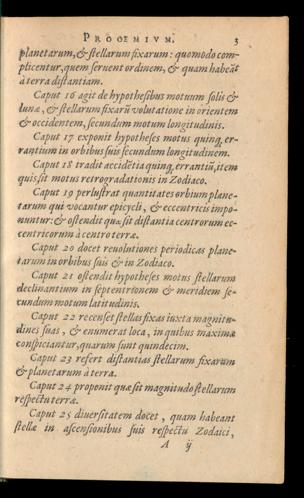 PROOEMIVM. 3
planetarum, & stellarum fixarum: quomodo com-
plicentur, quem seruent ordinem, & quam habeāt
à terra distantiam.
Caput 16 agit de hypothesibus motuum solis &
lunæ, & stellarum fixarū volutatione in orientem
& occidentem, secundum motum longitudinis.
Caput 17 exponit hypotheses motus quinq, er-
rantium in orbibus suis secundum longitudinem.
Caput 18 tradit accidēta quinq, errantiū, item
quis sit motus retrogradationis in Zodiaco.
Caput 19 perlustrat quantitates orbium plane-
tarum qui vocantur epicycli, & eccentricis impo-
nuntur: & ostendit quæ sit distantia centrorum ec-
centricorum à centro terræ.
Caput 20 docet reuolutiones periodicas plane-
tarum in orbibus suis & in Zodiaco.
Caput 21 ostendit hypotheses motus stellarum
declinantium in septentrionem & meridiem se-
cundum motum latitudinis.
Caput 22 recenset stellas fixas iuxta magnitu-
dines suas, & enumerat loca, in quibus maximæ
conspiciantur, quarum sunt quindecim.
Caput 23 refert distantias stellarum fixarum
& planetarum à terra.
Caput 24 proponit quæ sit magnitudo stellarum
respectu terræ.
Caput 25 diuersitatem docet, quam habeant
stellæ in ascensionibus suis respectu Zodaici,
A ij